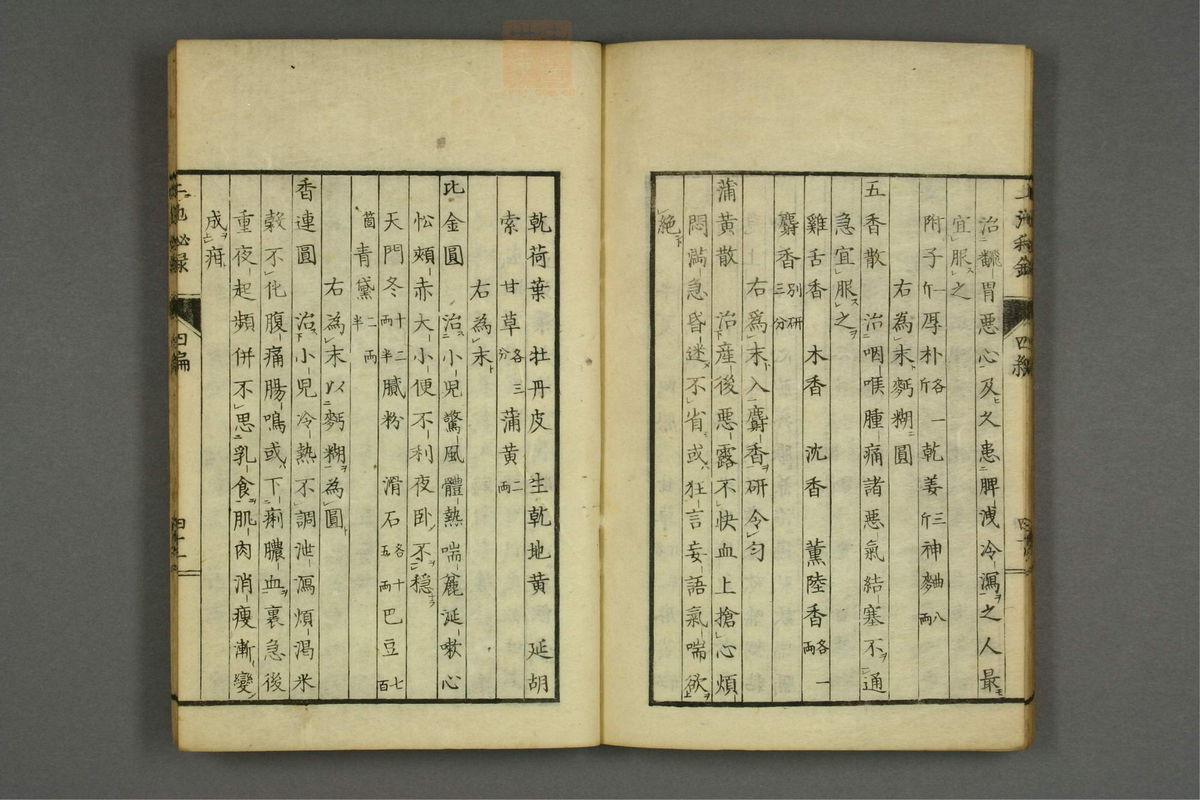 治飜胃惡心及久患脾洩冷瀉之人最
宜服之
附子一斤厚朴各一斤乾姜三斤神麯八兩
右為末麪糊圓
五香散 治咽喉腫痛諸惡氣結塞不通
急宜服之
雞舌香 木香 沈香 薫陸香各一兩
麝香別研三分
右爲末入麝香研令匀
蒲黄散 治産後惡露不快血上搶心煩
悶満急昏迷不省或狂言妄語氣喘欲
絶
乾荷葉 牡丹皮 生乾地黄 延胡
索 甘草各三分 蒲黄二兩
右為末
比金圓 治小兒驚風體熱喘麄涎嗽心
忪頰赤大小便不利夜卧不穏
天門冬十二兩半 膩粉 滑石各十五兩 巴豆七百
箇 青黛二兩半
右為末以麪糊為圓
香連圓 治小兒冷熱不調泄瀉煩渇米
穀不化腹痛腸鳴或下痢膿血裏急後
重夜起頻併不思乳食肌肉消痩漸變
成疳
四編